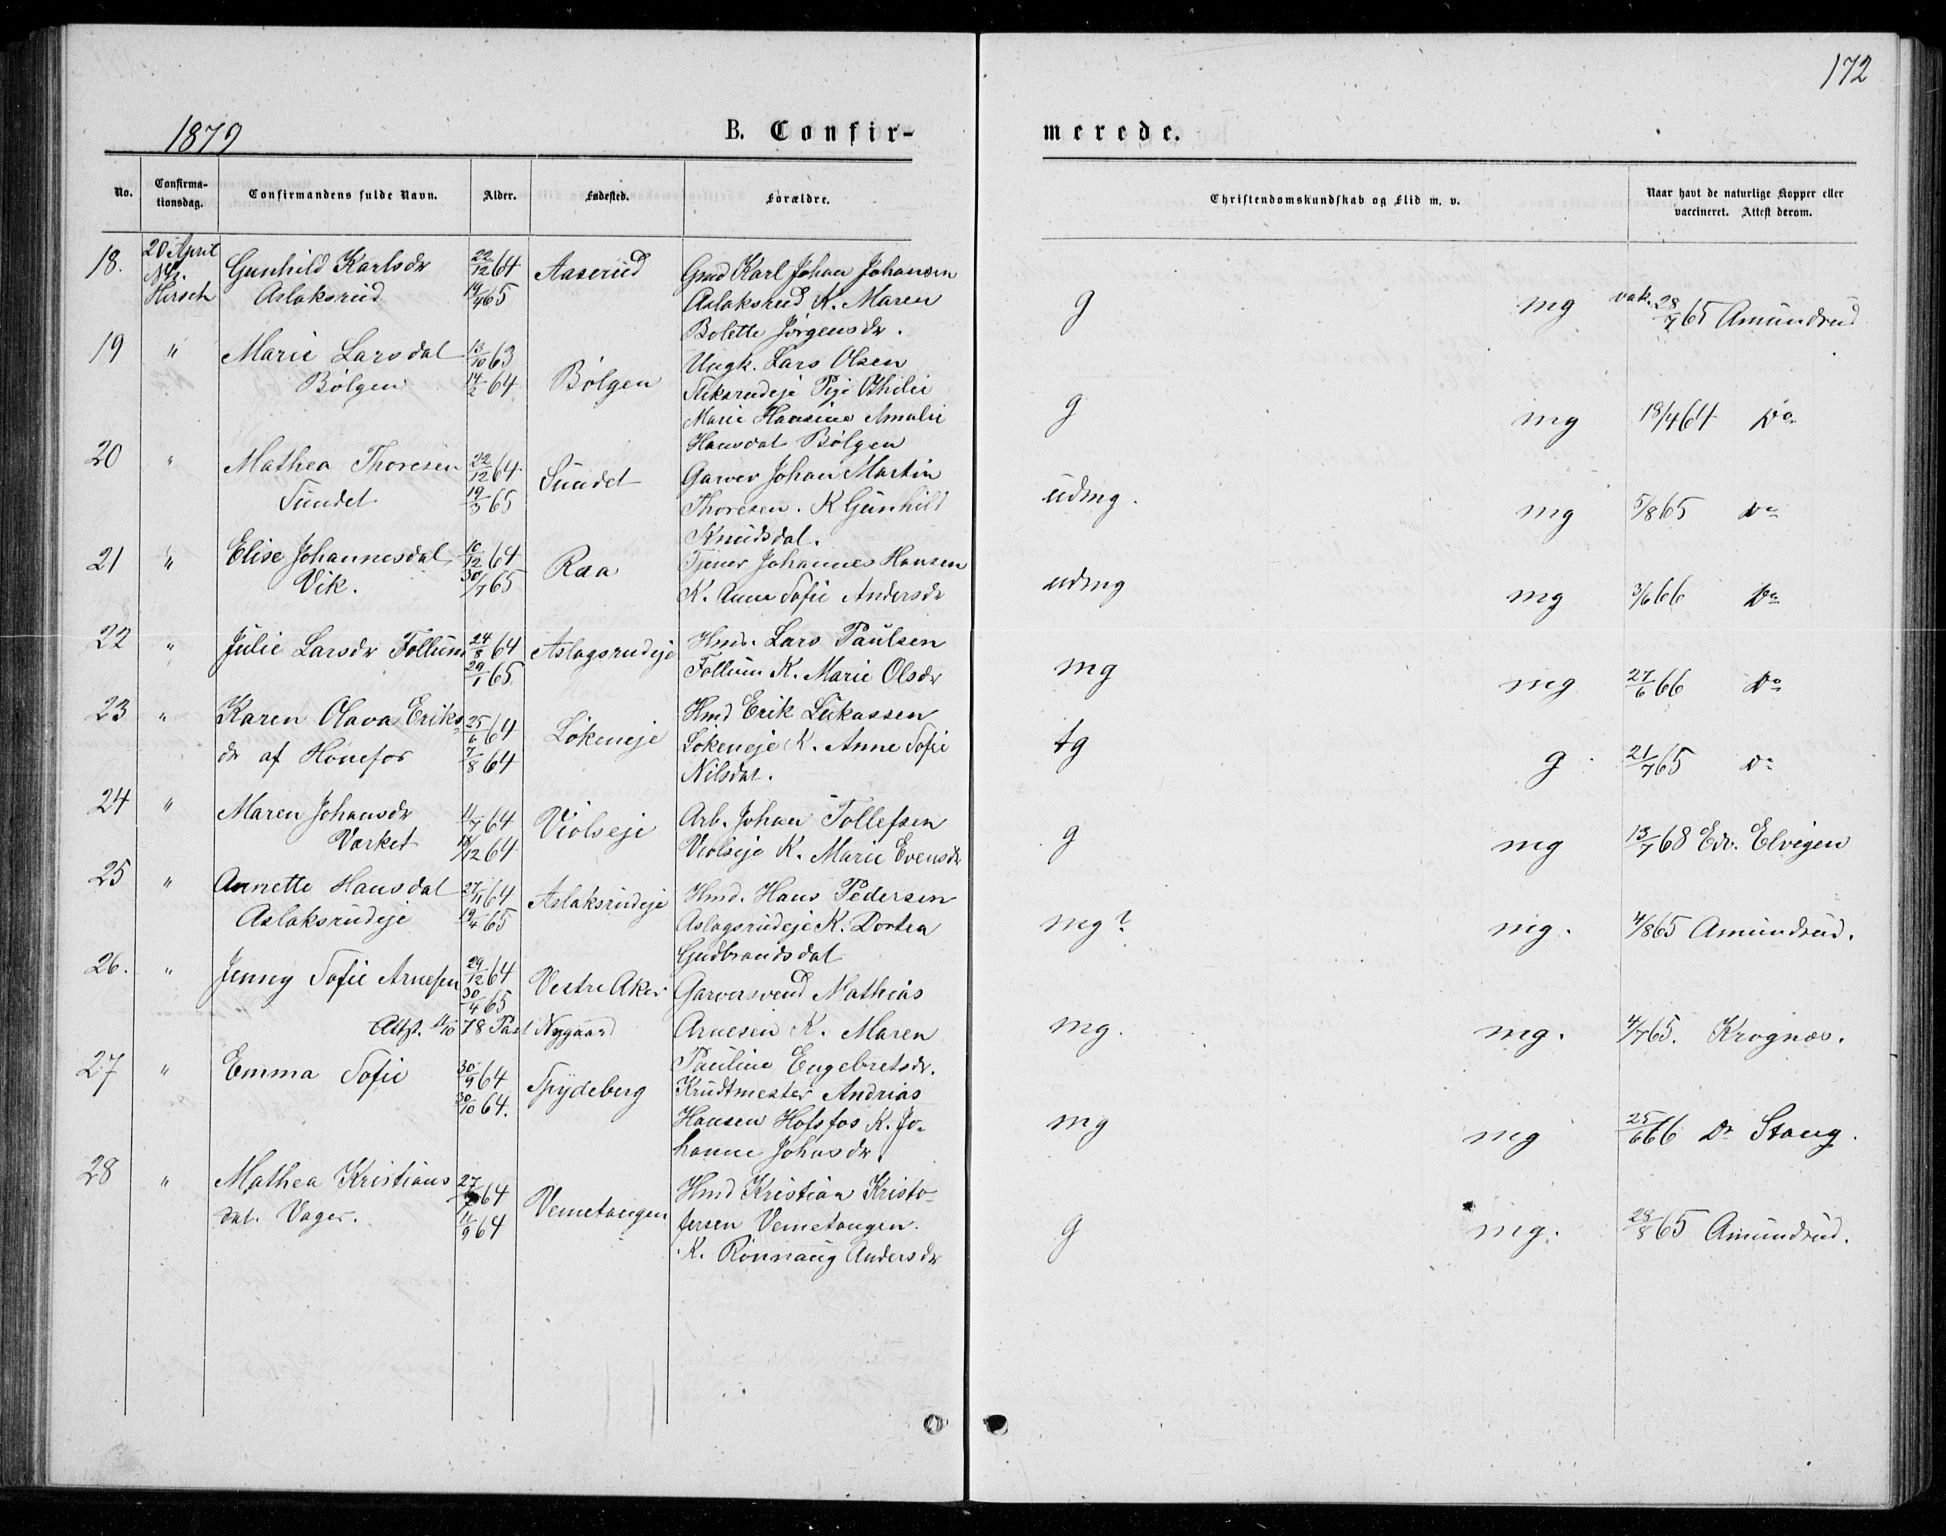 172
1879 B. Confir- merede.
No. Confirma-tionsdag. Confirmandens fulde Navn. Alder. Fødested. Forældre. Christendomskundskab og Flid m. v. Naar havt de naturlige Kopper eller vaccineret. Attest derom.
18. 20 April Gunhild Karlsdr 22/12 64 Aaserud Gmd Karl Johan Johansen
Hirsch Aslaksrud 19/4 65 Aslaksrud K. Maren g mg vak. 28/7 65 Amundrud
Bolette Jørgensdr.
19 " Marie Larsdal 13/10 63 Ungk. Lars Olsen
Bølgen 14/2 64 Bølgen Pige Othilie
Marie Hansine Amalie g mg 18/4 64 Do
Hansdat Bølgen
20 " Mathea Thoresen 22/12 64 Sundet Garver Johan Martin
Sundet 19/3 65 Thoresen. K Gunhild udmg. mg 5/8 65 Do
Knudsdal.
21 " Elise Johannesdal 10/12 64 Raa Tjener Johannes Hansen
Vik. 30/7 65 K. Anne Sofie Andersdr udmg mg 3/6 66 Do
22 " Julie Larsdr Follum 24/8 64 Aslagsrudeje Hmd. Lars Paulsen
29/1 65 Follum K. Marie Olsdr mg mg 27/6 66 Do
23 " Karen Olava Eriks- 25/6 64 Løkeneje Hmd Erik Lukassen
dr af Hønefos 7/8 64 Løkeneje K. Anne Sofie tg g 21/7 65 Do
Nilsdat.
24 " Maren Johansdr 11/7 64 Violseje Arb. Johan Tollefsen
Værket 18/12 64 Violseje K. Marie Evensdr g mg 13/7 68 Edv. Elvigen
25 " Annette Hansdal 27/11 64 Aslaksrudeje Hmd. Hans Pedersen
Aslaksrudeje 19/4 65 Aslagsrudeje K. Dortea mg? mg. 4/8 65 Amundrud.
Gudbrandsdat
26. " Jenny Sofie Arnesen 29/12 64 Vestre Aker Garversvend Mathias
30/4 65
Attst. 11/10 78 Past Nygaard Arnesen K. Maren mg. mg. 4/7 65. Krognæs.
Pauline Engebretsdr.
27 " Emma Sofie 30/9 64 Spydeberg Krudtmester Andrias
30/10 64. Hansen Hofsfos K. Jo- mg mg 25/6 66 Dr Stang.
hanne Johnsdr.
28 " Mathea Kristians 27/7 64 Vemetangen Hmd Kristian Kristo-
dat. Vager. 11/9 64 fersen Vemetangen. g mg. 28/8 65 Amundrud.
K. Rønnaug Andersdr